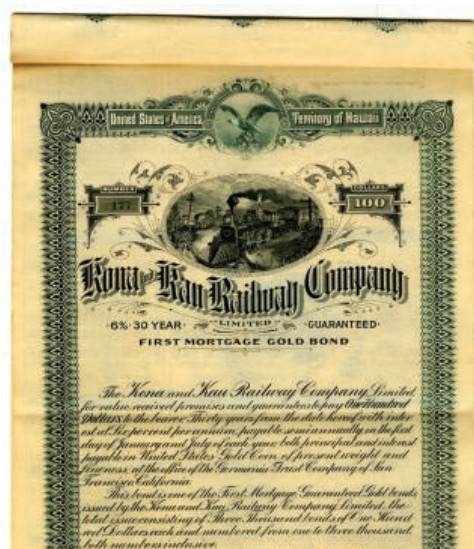 United States of America Territory of Hawaii
NUMBER DOLLARS
177 100
Kona and Kau Railway Company
LIMITED
6% 30 YEAR GUARANTEED
FIRST MORTGAGE GOLD BOND
The Kona and Kau Railway Company, Limited
for value received promises and guarantees to pay One Hundred
Dollars to the bearer Thirty years from the date hereof with inter
est at Six per cent per annum, payable semi annually on the first
day of January and July of each year both principal and interest
payable in United States Gold Coin of present weight and
fineness, at the office of the Germania Trust Company of San
Francisco California.
This bond is one of the First Mortgage Guaranteed Gold bonds
issued by the Kona and Kau Railway Company Limited, the
total issue consisting of Three Thousand bonds of One Hund
red Dollars each and numbered from one to three thousand,
both numbers inclusive.